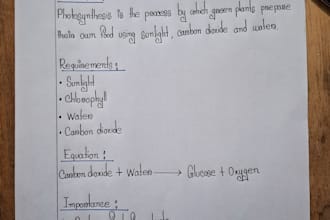 Photosynthesis is the process by which green plants prepare
their own food using sunlight, carbon dioxide and water.
Requirements:
• Sunlight
• Chlorophyll
• Water
• Carbon dioxide
Equation:
Carbon dioxide + Water ⟶ Glucose + Oxygen
Importance: